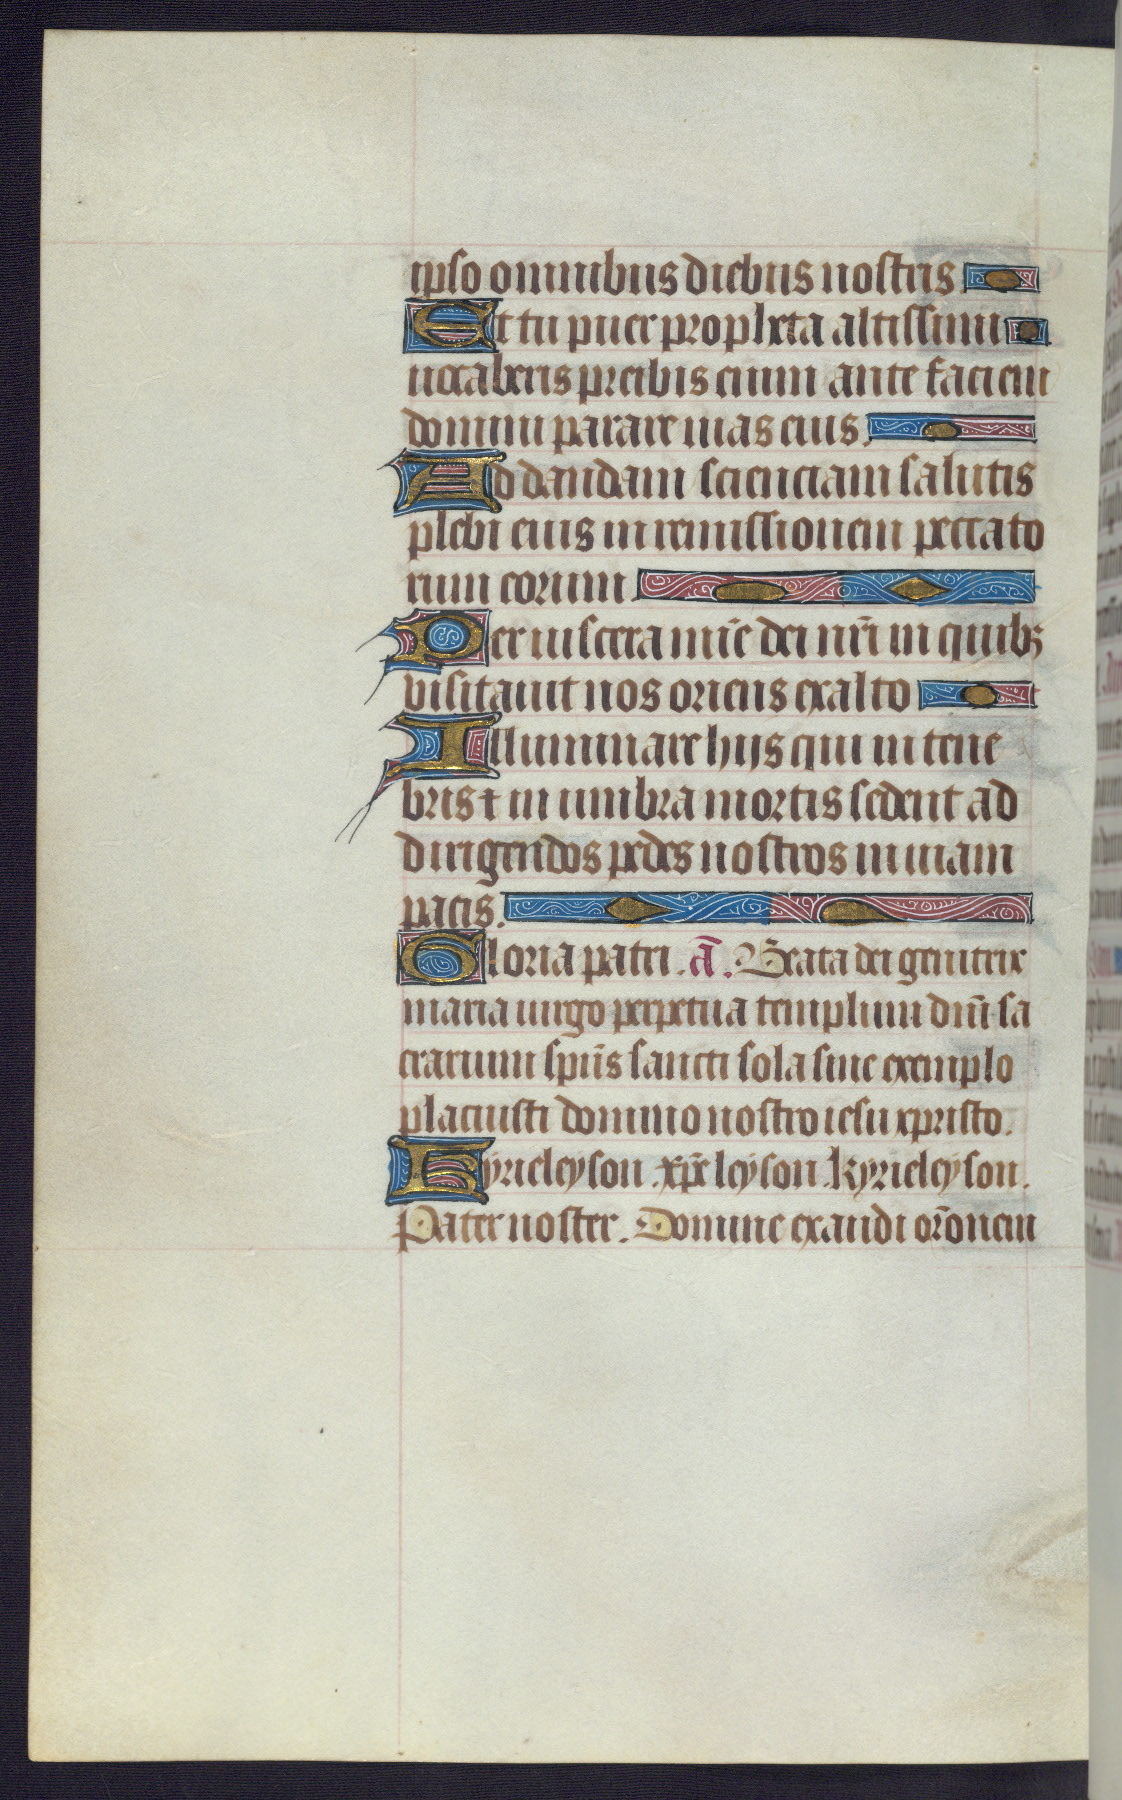 ipso omnibus diebus nostris.
Et tu puer propheta altissimi
uocaberis preibis enim ante faciem
domini parare uias eius.
Ad dandam scienciam salutis
plebi eius in remissionem peccato
rum eorum.
Per uiscera mīe dei nr̄i in quibꝫ
visitauit nos oriens exalto
Illuminare hijs qui in tene
bris ⁊ in umbra mortis sedent ad
dirigendos pedes nostros in uiam
pacis.
Gloria patri. ā. Beata dei genitrix
maria uirgo perpetua templum dn̄i sa
crarium spūs sancti sola sine exemplo
placuisti domino nostro iesu xpristo.
Kyrieleyson. xp̄eleyson. kyrieleyson.
Pater noster. Domine exaudi or̄onem